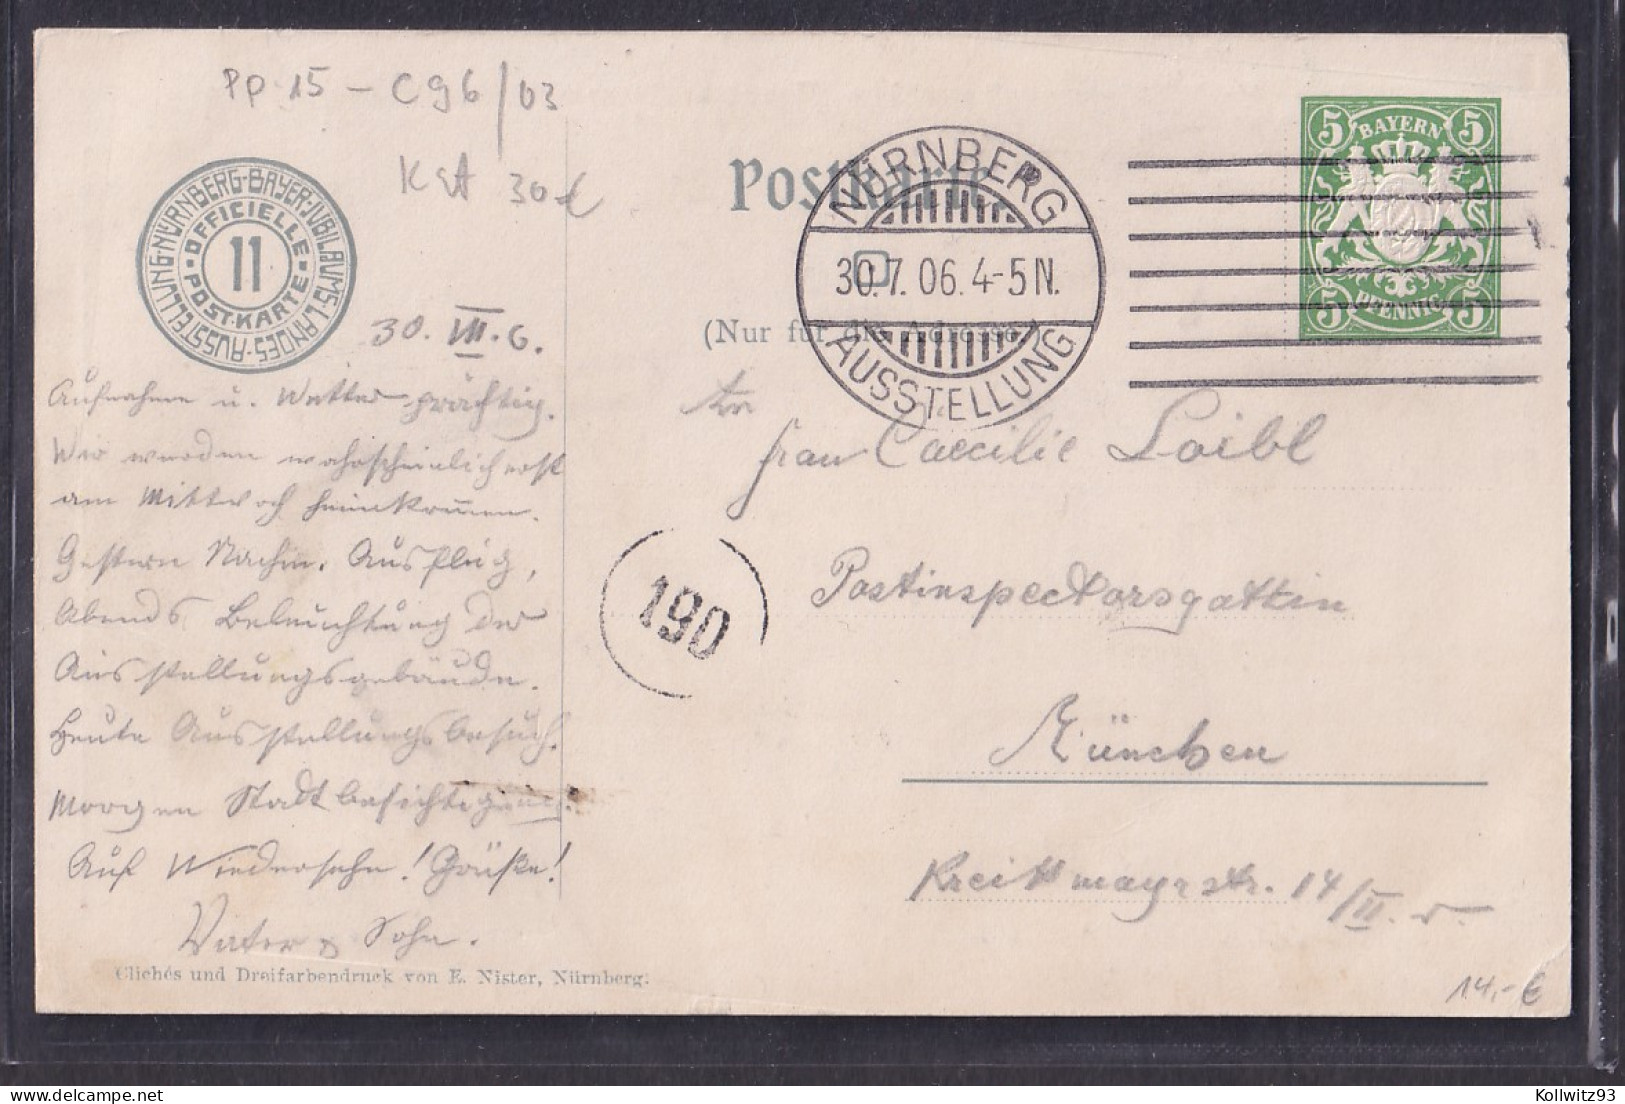 Pp 15 - C 96/03
KSt 30 €
NÜRNBERG·BAYER·JVBILÄVMS·LANDES·AUSSTELLUNG·
OFFICIELLE
11
POSTKARTE
Postkarte
NÜRNBERG
30.7.06.4-5N.
AUSSTELLUNG
(Nur für die Adresse.)
5 BAYERN 5
5 PFENNIG 5
30. VII. 6.
Aufnahme u. Wetter prächtig.
Wir werden wahrscheinlich erst
am Mittwoch heimkommen.
Gestern Nachm. Ausflug,
Abends Beleuchtung der
Ausstellungsgebäude.
Heute Ausstellungsbesuch.
Morgen Stadtbesichtigung.
Auf Wiedersehn! Grüße!
Vater & Sohn.
An
Frau Caecilie Loibl
Postinspectorsgattin
München
Kreittmayrstr. 14/II. r.
190
Clichés und Dreifarbendruck von E. Nister, Nürnberg.
14,- €
Kollwitz93